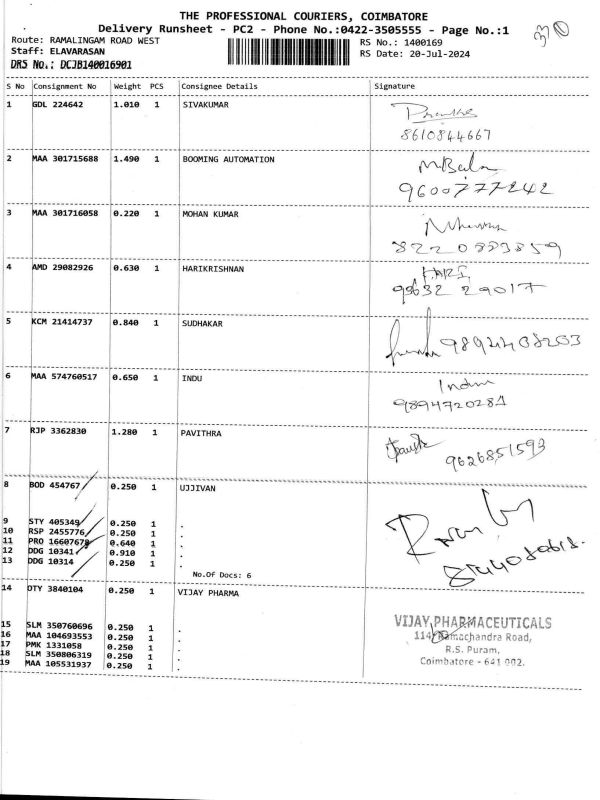 THE PROFESSIONAL COURIERS, COIMBATORE
Delivery Runsheet - PC2 - Phone No.:0422-3505555 - Page No.:1
Route: RAMALINGAM ROAD WEST RS No.: 1400169
Staff: ELAVARASAN RS Date: 20-Jul-2024
DRS No.: DCJB140016901
S No Consignment No Weight PCS Consignee Details Signature
1 GDL 224642 1.010 1 SIVAKUMAR
8610844667
2 MAA 301715688 1.490 1 BOOMING AUTOMATION M Bala
9600777242
3 MAA 301716058 0.220 1 MOHAN KUMAR
8220883859
4 AMD 29082926 0.630 1 HARIKRISHNAN HARI
99632 29017
5 KCM 21414737 0.840 1 SUDHAKAR
9894408203
6 MAA 574760517 0.650 1 INDU Indu
9894720281
7 RJP 3362830 1.280 1 PAVITHRA
9626851593
8 BOD 454767 0.250 1 UJJIVAN
9 STY 405349 0.250 1 .
10 RSP 2455776 0.250 1 .
11 PRO 16607678 0.640 1 .
12 DDG 10341 0.910 1 .
13 DDG 10314 0.250 1 .
No.Of Docs: 6
14 OTY 3840104 0.250 1 VIJAY PHARMA
15 SLM 350760696 0.250 1 .
16 MAA 104693553 0.250 1 .
17 PMK 1331058 0.250 1 .
18 SLM 350806319 0.250 1 .
19 MAA 105531937 0.250 1 .
VIJAY PHARMACEUTICALS
114, Ramachandra Road,
R.S. Puram,
Coimbatore - 641 002.